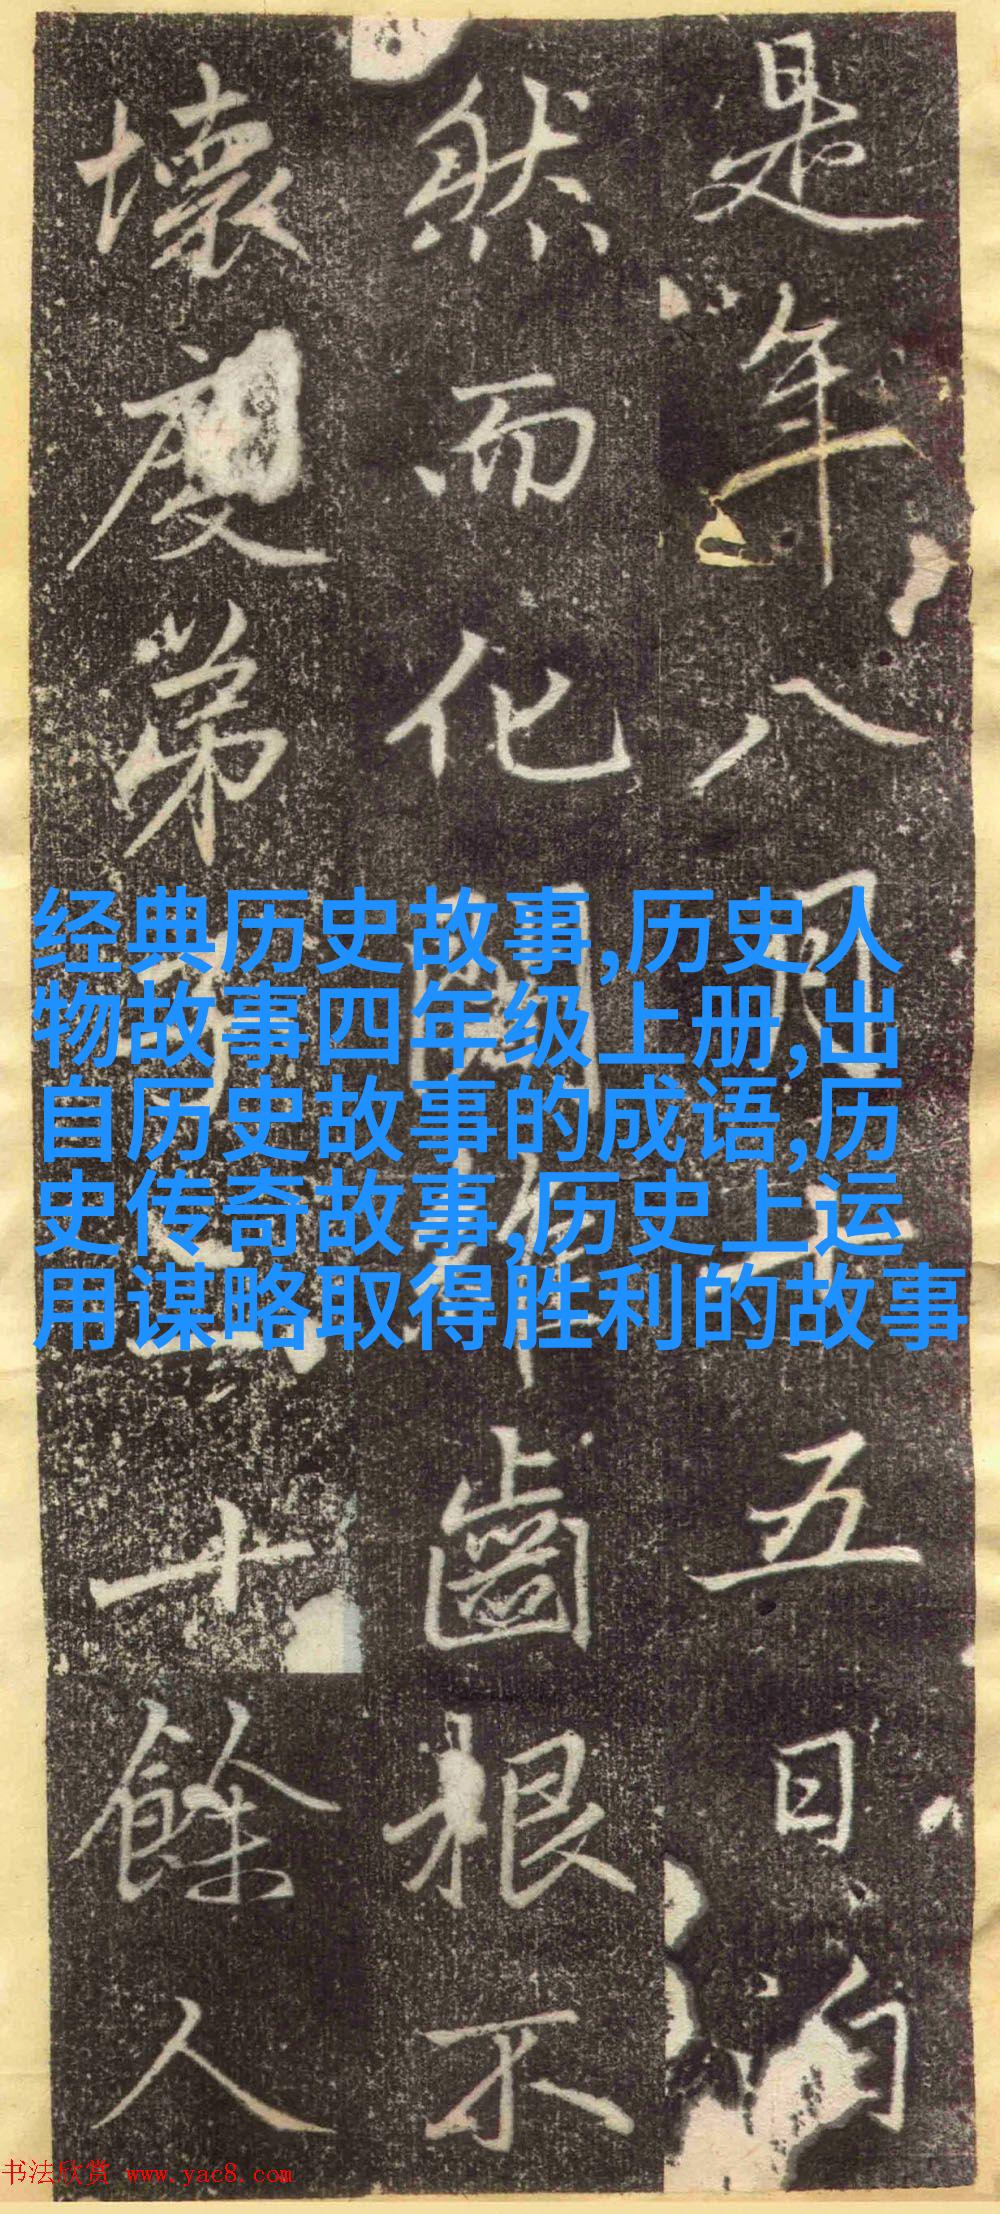 是年八月五日
然而化年齒根不
壞度弟子十餘人
经典历史故事,历史人
物故事四年级上册,出
自历史故事的成语,历
史传奇故事,历史上运
用谋略取得胜利的故事
书法欣赏 www.yac8.com